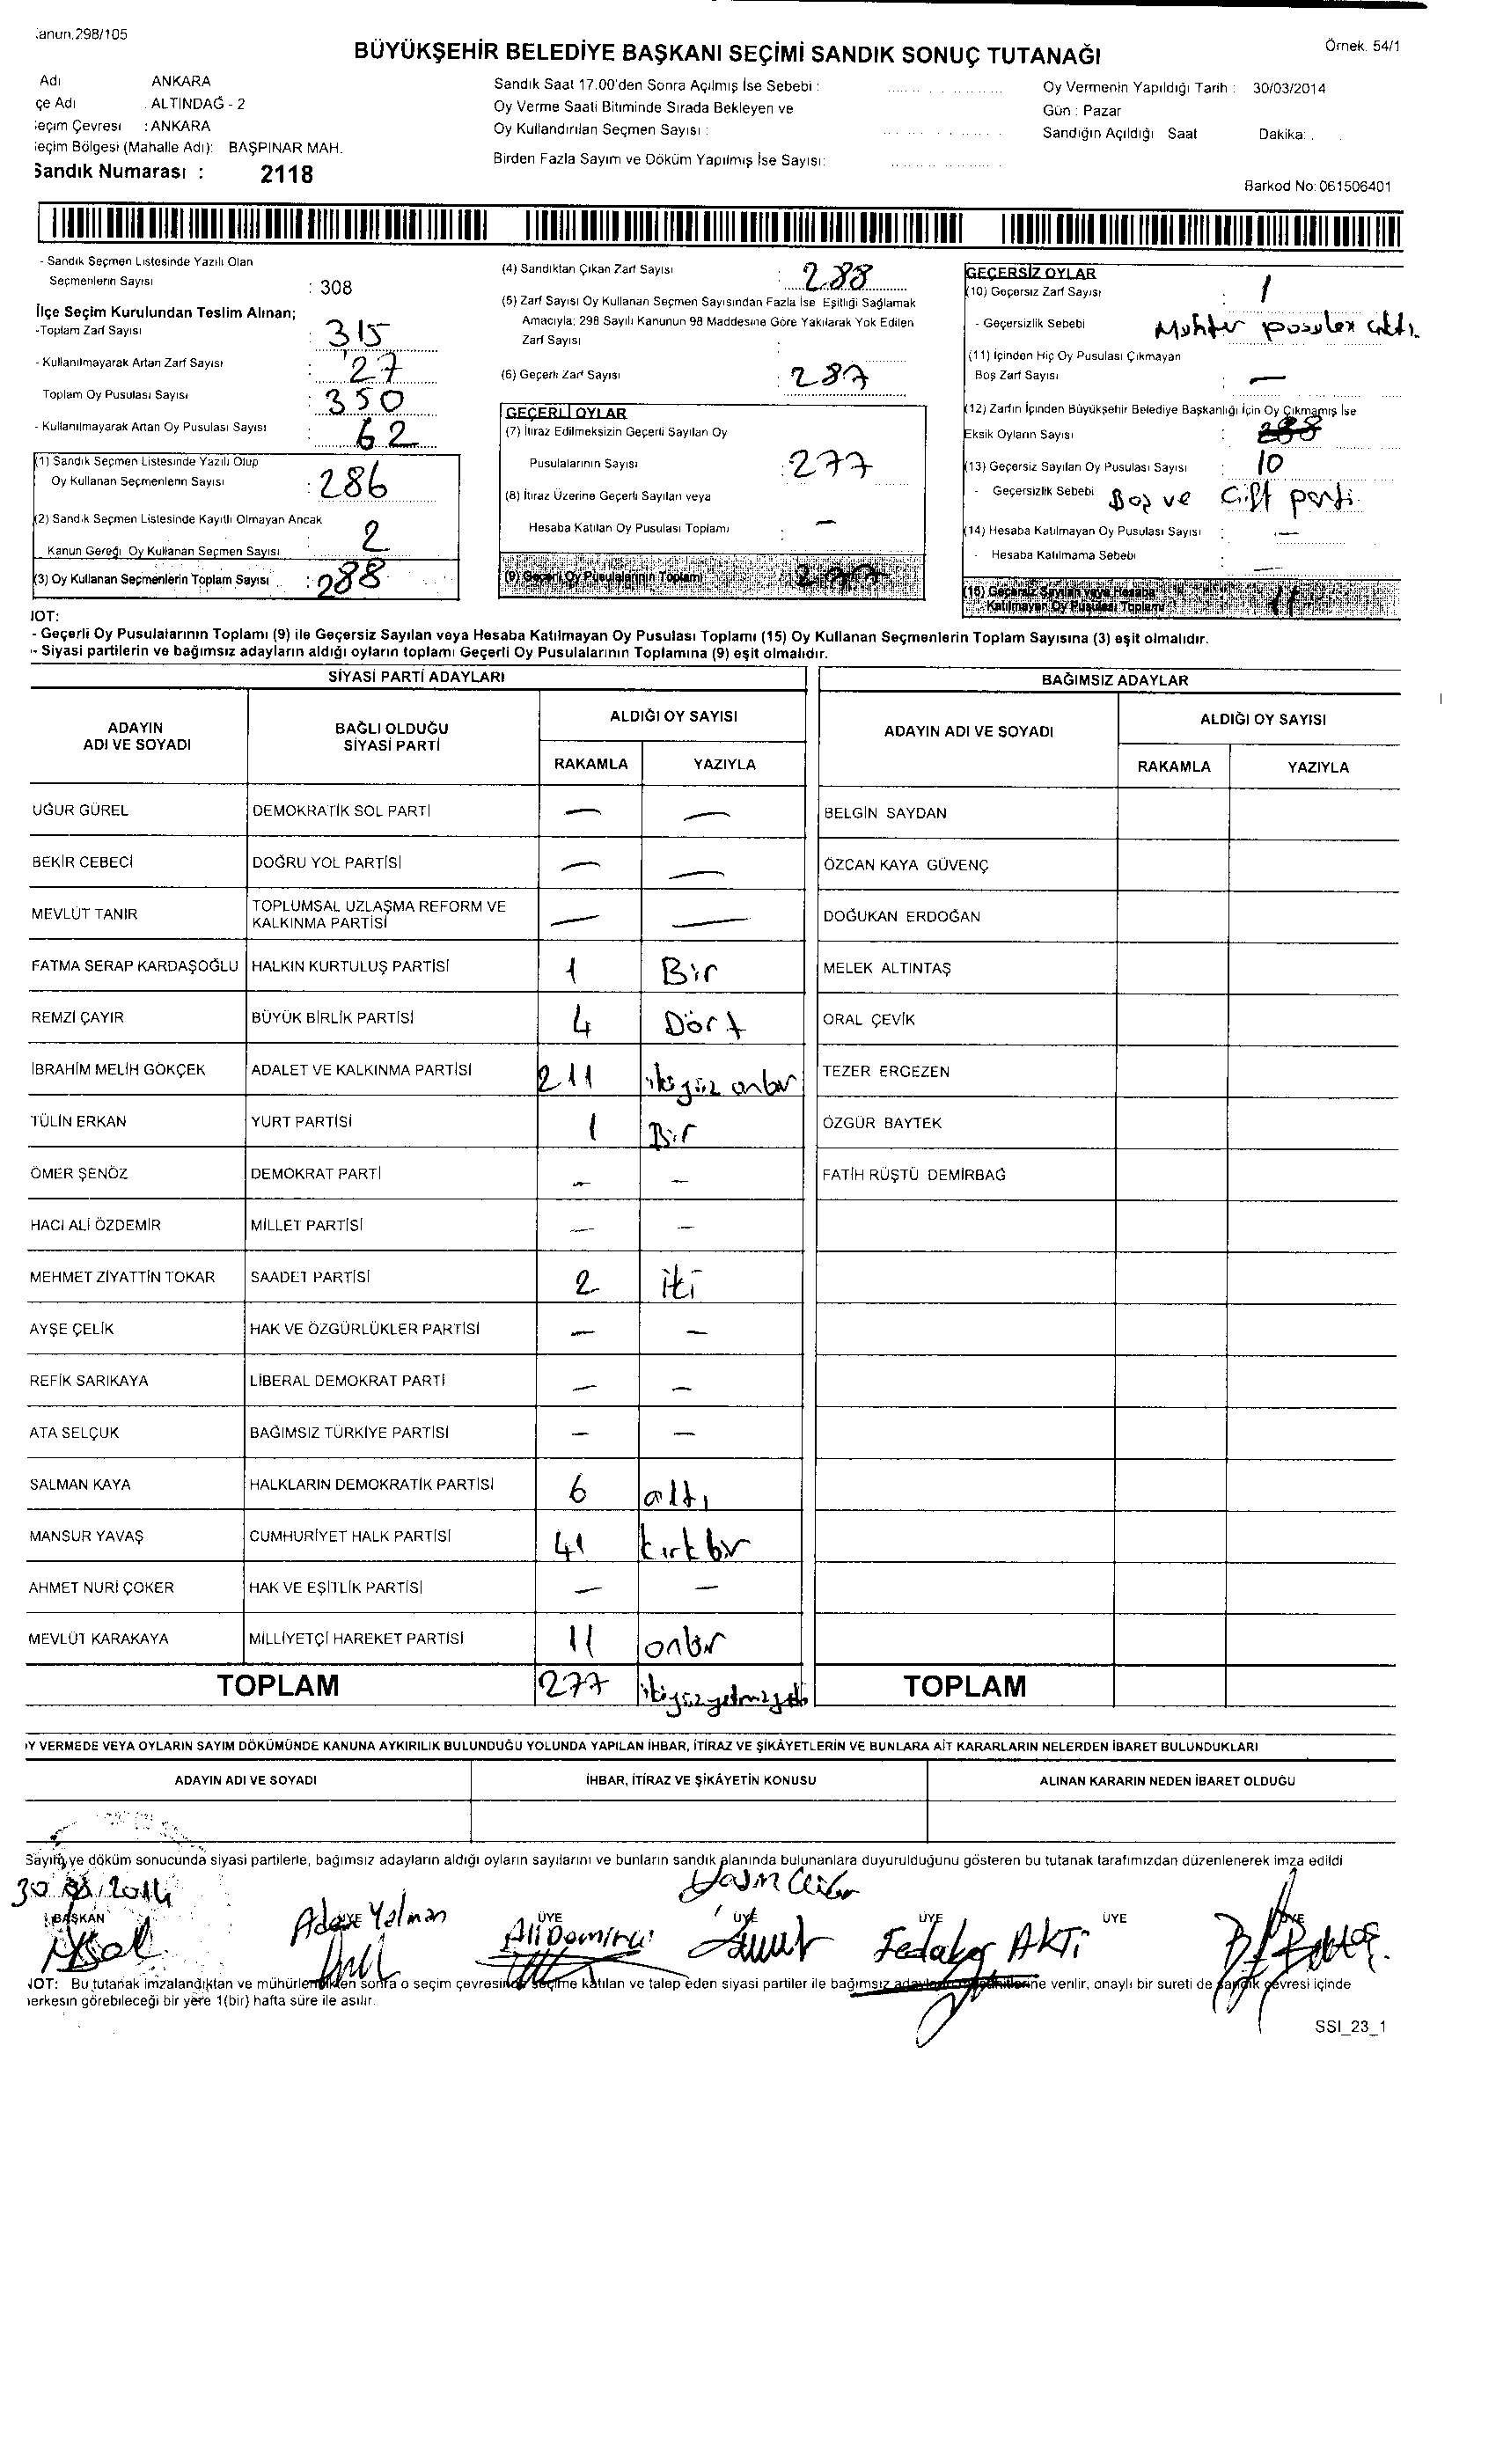 .anun.298/105
BÜYÜKŞEHİR BELEDİYE BAŞKANI SEÇİMİ SANDIK SONUÇ TUTANAĞI
Örnek. 54/1
Adı ANKARA
çe Adı . ALTINDAĞ - 2
eçim Çevresi : ANKARA
eçim Bölgesi (Mahalle Adı): BAŞPINAR MAH.
Sandık Numarası : 2118
Sandık Saat 17.00'den Sonra Açılmış İse Sebebi :
Oy Verme Saati Bitiminde Sırada Bekleyen ve
Oy Kullandırılan Seçmen Sayısı :
Birden Fazla Sayım ve Döküm Yapılmış İse Sayısı:
Oy Vermenin Yapıldığı Tarih : 30/03/2014
Gün : Pazar
Sandığın Açıldığı Saat Dakika:
Barkod No: 061506401
- Sandık Seçmen Listesinde Yazılı Olan
Seçmenlerin Sayısı : 308
İlçe Seçim Kurulundan Teslim Alınan;
-Toplam Zarf Sayısı : 315
- Kullanılmayarak Artan Zarf Sayısı : 27
Toplam Oy Pusulası Sayısı : 350
- Kullanılmayarak Artan Oy Pusulası Sayısı : 62
(1) Sandık Seçmen Listesinde Yazılı Olup
Oy Kullanan Seçmenlerin Sayısı : 286
(2) Sandık Seçmen Listesinde Kayıtlı Olmayan Ancak
Kanun Gereği Oy Kullanan Seçmen Sayısı : 2
(3) Oy Kullanan Seçmenlerin Toplam Sayısı : 288
(4) Sandıktan Çıkan Zarf Sayısı : 288
(5) Zarf Sayısı Oy Kullanan Seçmen Sayısından Fazla İse Eşitliği Sağlamak
Amacıyla; 298 Sayılı Kanunun 98 Maddesine Göre Yakılarak Yok Edilen
Zarf Sayısı :
(6) Geçerli Zarf Sayısı : 287
GEÇERLİ OYLAR
(7) İtiraz Edilmeksizin Geçerli Sayılan Oy
Pusulalarının Sayısı : 277
(8) İtiraz Üzerine Geçerli Sayılan veya
Hesaba Katılan Oy Pusulası Toplamı : –
(9) Geçerli Oy Pusulalarının Toplamı 277
GEÇERSİZ OYLAR
(10) Geçersiz Zarf Sayısı : 1
- Geçersizlik Sebebi Muhtar pusulası çıktı.
(11) İçinden Hiç Oy Pusulası Çıkmayan
Boş Zarf Sayısı : –
(12) Zarfın İçinden Büyükşehir Belediye Başkanlığı İçin Oy Çıkmamış İse
Eksik Oyların Sayısı : 288
(13) Geçersiz Sayılan Oy Pusulası Sayısı : 10
- Geçersizlik Sebebi Boş ve Çift parti.
(14) Hesaba Katılmayan Oy Pusulası Sayısı : –
- Hesaba Katılmama Sebebi –
(15) Geçersiz Sayılan veya Hesaba
Katılmayan Oy Pusulası Toplamı 11
NOT:
- Geçerli Oy Pusulalarının Toplamı (9) ile Geçersiz Sayılan veya Hesaba Katılmayan Oy Pusulası Toplamı (15) Oy Kullanan Seçmenlerin Toplam Sayısına (3) eşit olmalıdır.
- Siyasi partilerin ve bağımsız adayların aldığı oyların toplamı Geçerli Oy Pusulalarının Toplamına (9) eşit olmalıdır.
SİYASİ PARTİ ADAYLARI
ADAYIN ADI VE SOYADI BAĞLI OLDUĞU SİYASİ PARTİ ALDIĞI OY SAYISI
RAKAMLA YAZIYLA
UĞUR GÜREL DEMOKRATİK SOL PARTİ – –
BEKİR CEBECİ DOĞRU YOL PARTİSİ – –
MEVLÜT TANIR TOPLUMSAL UZLAŞMA REFORM VE KALKINMA PARTİSİ – –
FATMA SERAP KARDAŞOĞLU HALKIN KURTULUŞ PARTİSİ 1 Bir
REMZİ ÇAYIR BÜYÜK BİRLİK PARTİSİ 4 Dört
İBRAHİM MELİH GÖKÇEK ADALET VE KALKINMA PARTİSİ 211 ikiyüz onbir
TÜLİN ERKAN YURT PARTİSİ 1 Bir
ÖMER ŞENÖZ DEMOKRAT PARTİ – –
HACI ALİ ÖZDEMİR MİLLET PARTİSİ – –
MEHMET ZİYATTİN TOKAR SAADET PARTİSİ 2 iki
AYŞE ÇELİK HAK VE ÖZGÜRLÜKLER PARTİSİ – –
REFİK SARIKAYA LİBERAL DEMOKRAT PARTİ – –
ATA SELÇUK BAĞIMSIZ TÜRKİYE PARTİSİ – –
SALMAN KAYA HALKLARIN DEMOKRATİK PARTİSİ 6 altı
MANSUR YAVAŞ CUMHURİYET HALK PARTİSİ 41 kırkbir
AHMET NURİ ÇOKER HAK VE EŞİTLİK PARTİSİ – –
MEVLÜT KARAKAYA MİLLİYETÇİ HAREKET PARTİSİ 11 onbir
TOPLAM 277 ikiyüzyetmişyedi
BAĞIMSIZ ADAYLAR
ADAYIN ADI VE SOYADI ALDIĞI OY SAYISI
RAKAMLA YAZIYLA
BELGİN SAYDAN
ÖZCAN KAYA GÜVENÇ
DOĞUKAN ERDOĞAN
MELEK ALTINTAŞ
ORAL ÇEVİK
TEZER ERGEZEN
ÖZGÜR BAYTEK
FATİH RÜŞTÜ DEMİRBAĞ
TOPLAM
Y VERMEDE VEYA OYLARIN SAYIM DÖKÜMÜNDE KANUNA AYKIRILIK BULUNDUĞU YOLUNDA YAPILAN İHBAR, İTİRAZ VE ŞİKÂYETLERİN VE BUNLARA AİT KARARLARIN NELERDEN İBARET BULUNDUKLARI
ADAYIN ADI VE SOYADI İHBAR, İTİRAZ VE ŞİKÂYETİN KONUSU ALINAN KARARIN NEDEN İBARET OLDUĞU
Sayım ve döküm sonucunda siyasi partilerle, bağımsız adayların aldığı oyların sayılarını ve bunların sandık alanında bulunanlara duyurulduğunu gösteren bu tutanak tarafımızdan düzenlenerek imza edildi
30 03/2014
BAŞKAN ÜYE ÜYE ÜYE ÜYE ÜYE ÜYE
Yalman Ali Fedakar AKTi
NOT: Bu tutanak imzalandıktan ve mühürlendikten sonra o seçim çevresinde seçime katılan ve talep eden siyasi partiler ile bağımsız adayların verilir, onaylı bir sureti de sandık çevresi içinde
herkesin görebileceği bir yere 1(bir) hafta süre ile asılır.
SSI_23_1